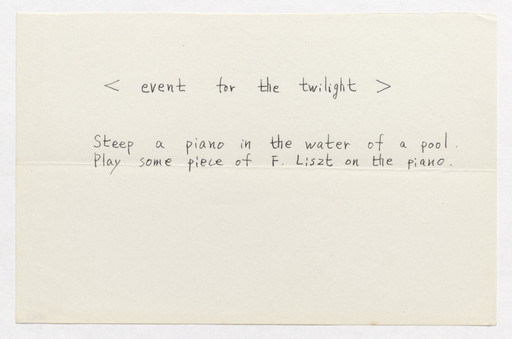 < event for the twilight >
Steep a piano in the water of a pool.
Play some piece of F. Liszt on the piano.